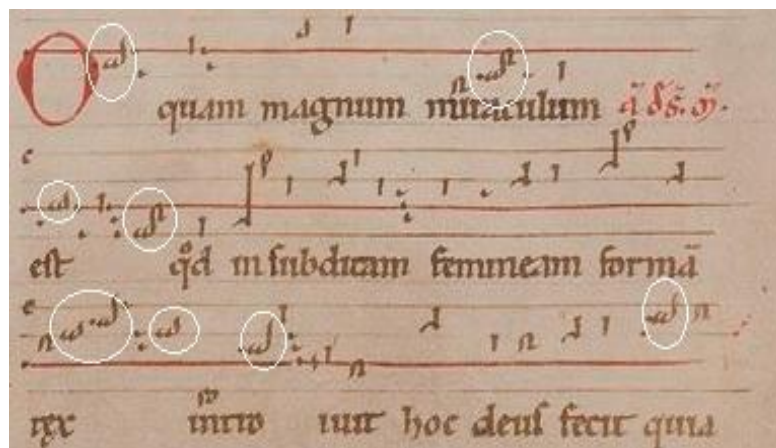 O quam magnum miraculum
est qͦd in subditam femineam formā
rex intro iuit hoc deus fecit quia